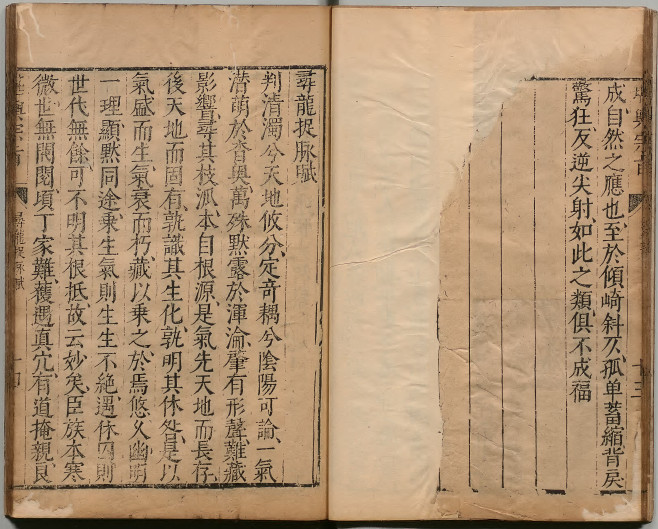 成自然之應也至於傾崎斜仄孤单蓄縮背戾
驚狂反逆尖射如此之類俱不成福
十三
尋龍捉脉賦
判清濁兮天地攸分定竒耦兮陰陽可論一氣
潜萌於杳㝠萬殊黙露於渾淪肇有形聲難藏
影響尋其枝泒本自根源是氣先天地而長存
後天地而固有孰識其生化孰明其休咎是以
氣盛而生氣衰而朽藏以乗之於焉悠久幽明
一理顯黙同途乗生氣則生生不絶遇休囚則
世代無餘可不明其根抵故云妙矣臣族本寒
微世無閥閱頃丁家難蒦遇真宂有道掩親良
尋龍捉脉賦